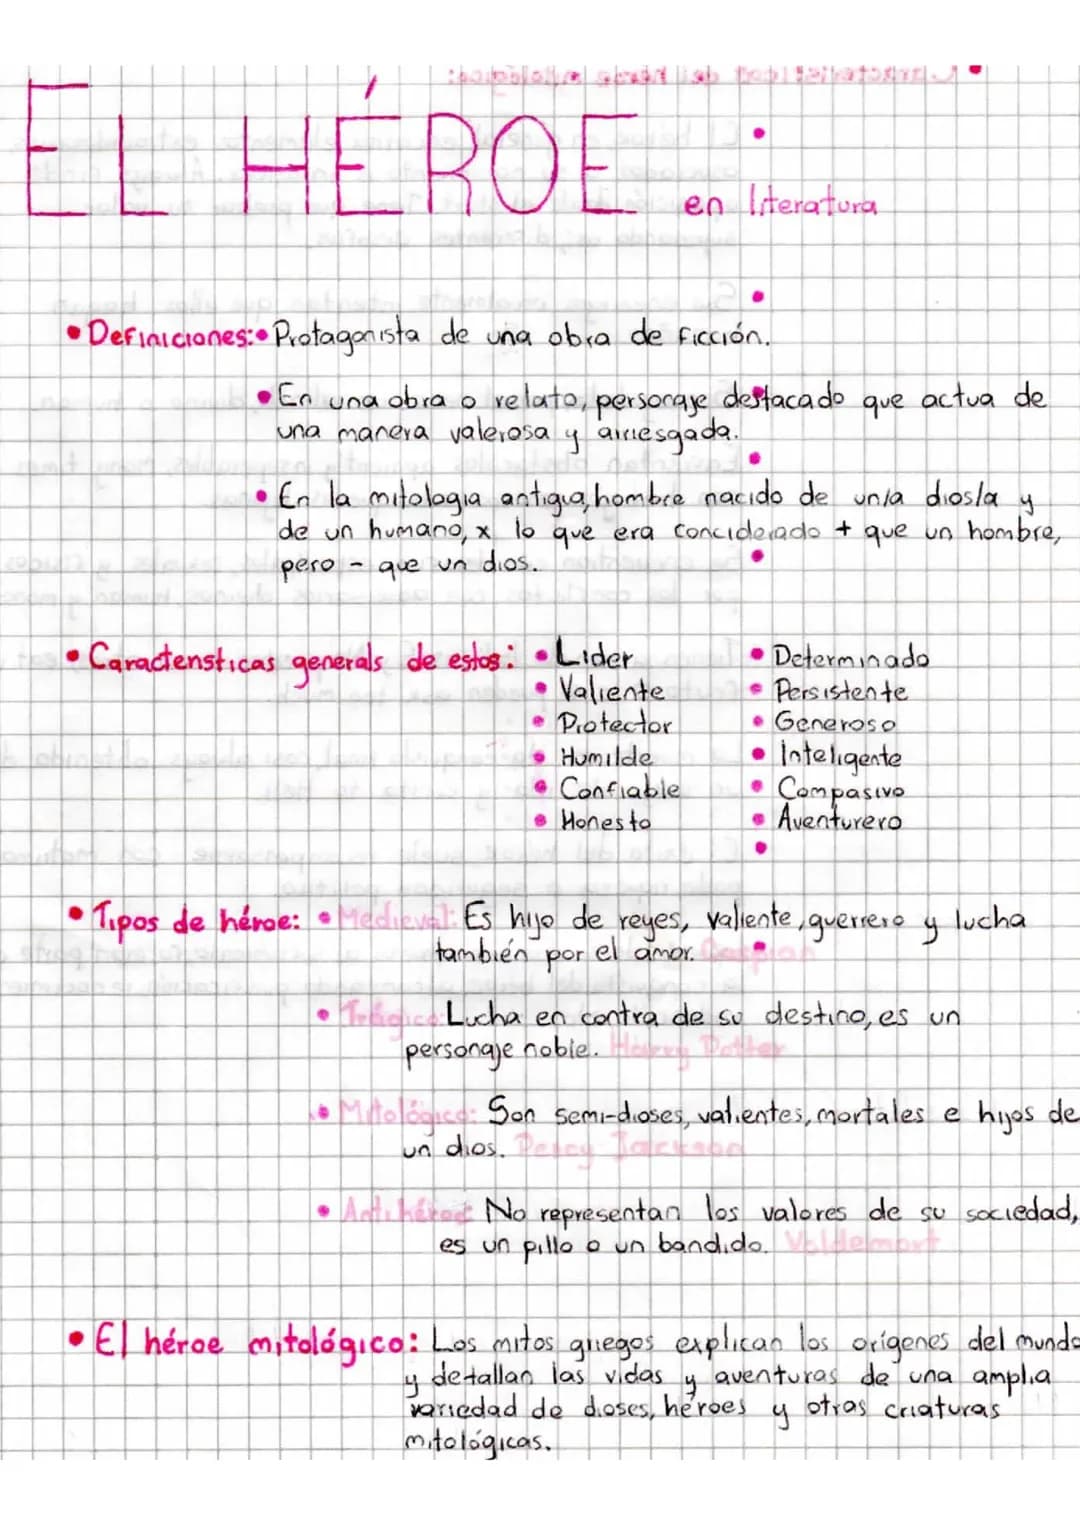 EL HÉROE
en literatura
• Definiciones: • Protagonista de una obra de ficción.
• En una obra o relato, personaje destacado que actua de
una manera valerosa y arriesgada.
• En la mitologia antigua, hombre nacido de un/a dios/a y
de un humano, x lo que era conciderado + que un hombre,
pero - que un dios.
• Caracteristicas generals de estos: • Lider • Determinado
• Valiente • Persistente
• Protector • Generoso
• Humilde • Inteligente
• Confiable • Compasivo
• Honesto • Aventurero
• Tipos de héroe: • Medieval: Es hijo de reyes, valiente, guerrero y lucha
también por el amor. Caspian
• Trágico: Lucha en contra de su destino, es un
personaje noble. Harry Potter
• Mitológico: Son semi-dioses, valientes, mortales e hijos de
un dios. Percy Jackson
• Antihéroe: No representan los valores de su sociedad,
es un pillo o un bandido. Voldemort
• El héroe mitológico: Los mitos griegos explican los orígenes del mundo
y detallan las vidas y aventuras de una amplia
variedad de dioses, héroes y otras criaturas
mitológicas.